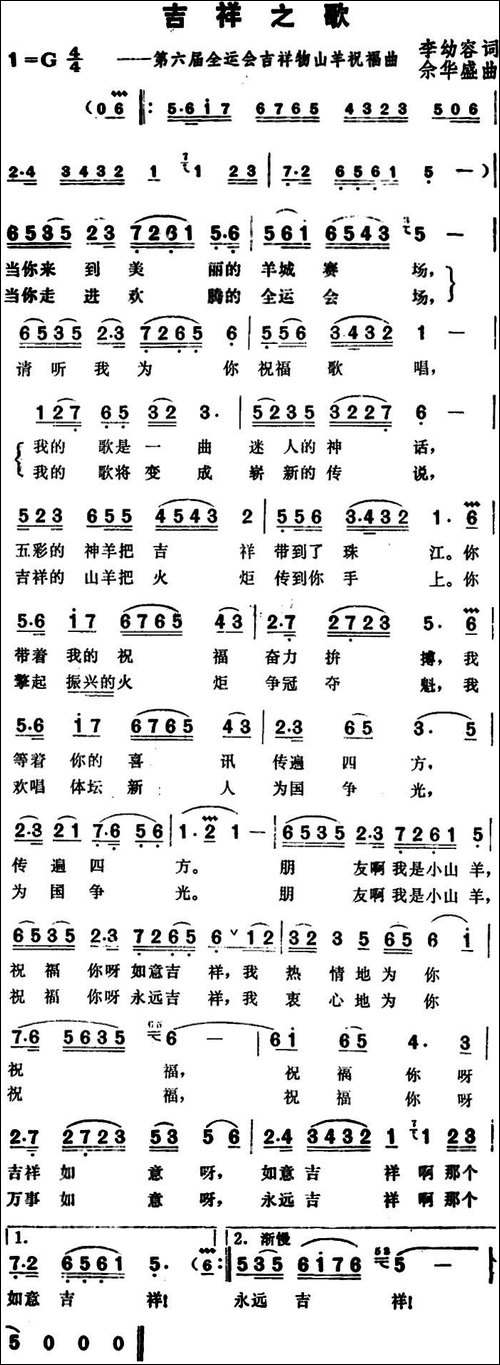 吉祥之歌
1=G 4/4 ——第六届全运会吉祥物山羊祝福曲 李幼容词
佘华盛曲
(06 ‖: 5·6i7 6765 4323 506 |
2·4 3432 1 1 23 | 7·2 6561 5 —) |
6535 23 7261 5·6 | 561 6543 5 — |
当你来 到 美 丽的 羊城 赛 场,
当你走 进 欢 腾的 全运 会 场,
6535 2·3 7265 6 | 5·56 3·432 1 — |
请听我为 你 祝福 歌 唱,
127 65 32 3· | 5235 3227 6 — |
我的 歌是 一 曲 迷 人的 神 话,
我的 歌将 变 成 崭 新的 传 说,
523 655 4543 2 | 5·56 3·432 1· 6 |
五彩的 神羊把 吉 祥 带到了 珠 江。你
吉祥的 山羊把 火 炬 传到你 手 上。你
5·6 i7 6765 43 | 2·7 2723 5· 6 |
带着 我的 祝 福 奋力 拚 搏,我
擎起 振兴的 火 炬 争冠 夺 魁,我
5·6 i7 6765 43 | 2·3 65 3· 5 |
等着 你的 喜 讯 传遍 四 方,
欢唱 体坛 新 人 为国 争 光,
2·3 21 7·6 56 | 1·2 1 — | 6535 2·3 7261 5 |
传 遍 四 方。 朋 友啊 我是小山 羊,
为 国 争 光。 朋 友啊 我是小山 羊,
6535 2·3 7265 6 ∨ 12 | 32 3 5 65 6 i |
祝 福 你呀 如意吉 祥,我 热 情 地 为 你
祝 福 你呀 永远吉 祥,我 衷 心 地 为 你
7·6 5635 6 — | 6i 65 4· 3 |
祝 福, 祝 福 你 呀
祝 福, 祝 福 你 呀
2·7 2723 53 56 | 2·4 3432 1 1 23 |
吉祥 如 意 呀, 如意 吉 祥 啊 那个
万事 如 意 呀, 永远 吉 祥 啊 那个
1. 2. 渐慢
7·2 6561 5· (6 :‖ 535 6i76 5 — |
如意 吉 祥! 永远 吉 祥!
5 0 0 0 ‖